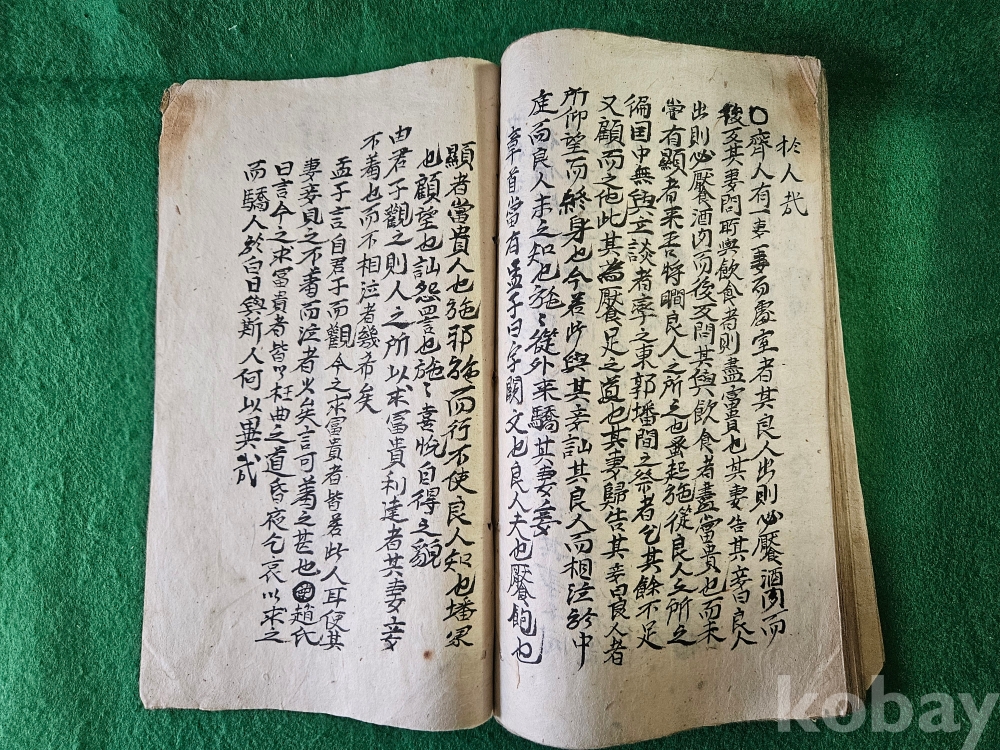 於人哉
○齊人有一妻一妾而處室者其良人出則必饜酒肉而
後反其妻問所與飲食者則盡富貴也其妻告其妾曰良人
出則必饜酒肉而後反問其與飲食者盡富貴也而未
嘗有顯者來吾將瞯良人之所之也蚤起施從良人之所之
徧国中無與立談者卒之東郭墦間之祭者乞其餘不足
又顧而之他此其為饜足之道也其妻歸告其妾曰良人者
所仰望而終身也今若此與其妾訕其良人而相泣於中
庭而良人未之知也施〻從外来驕其妻妾
章首當有孟子曰字闕文也良人夫也饜飽也
顯者當貴人也施邪施而行不使良人知也墦冢
也顧望也訕怨詈也施〻喜悅自得之貌
由君子觀之則人之所以求冨貴利達者其妻妾
不羞也而不相泣者幾希矣
孟子言自君子而觀今之求冨貴者皆若此人耳使其
妻妾見之不羞而泣者少矣言可羞之甚也 趙氏
曰言今之求冨貴者皆以枉曲之道昏夜乞哀以求之
而驕人於白日與斯人何以異哉
kobay